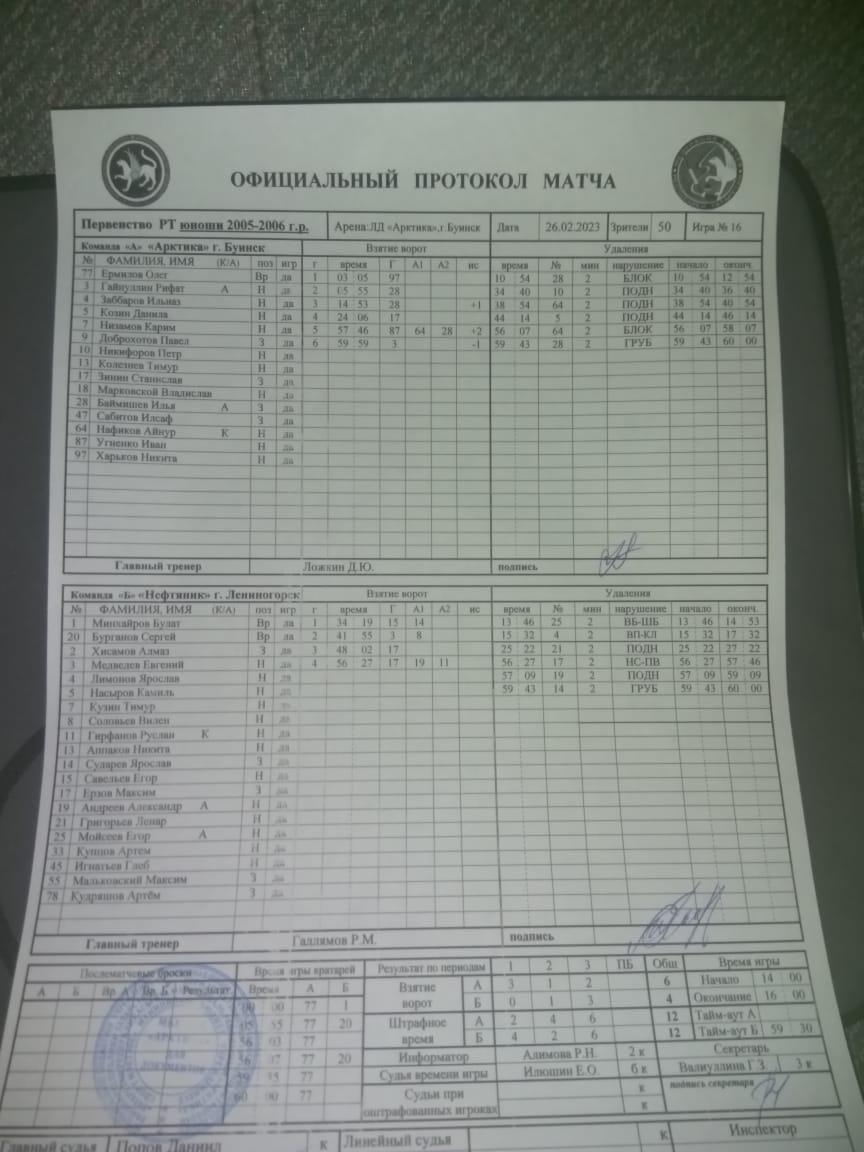 ОФИЦИАЛЬНЫЙ ПРОТОКОЛ МАТЧА
Первенство РТ юноши 2005-2006 г.р. Арена:ЛД «Арктика»,г.Буинск Дата 26.02.2023 Зрители 50 Игра № 16
Команда «А» «Арктика» г. Буинск Взятие ворот Удаления
№ ФАМИЛИЯ, ИМЯ (К/А) поз игр г время Г А1 А2 ис время № мин нарушение начало оконч.
77 Ермилов Олег Вр да 1 03 05 97 10 54 28 2 БЛОК 10 54 12 54
3 Гайнуллин Рифат А Н да 2 05 55 28 34 40 10 2 ПОДН 34 40 36 40
4 Заббаров Ильназ Н да 3 14 53 28 +1 38 54 64 2 ПОДН 38 54 40 54
5 Козин Данила Н да 4 24 06 17 44 14 5 2 ПОДН 44 14 46 14
7 Низамов Карим Н да 5 57 46 87 64 28 +2 56 07 64 2 БЛОК 56 07 58 07
9 Доброхотов Павел З да 6 59 59 3 -1 59 43 28 2 ГРУБ 59 43 60 00
10 Никифоров Петр Н да
13 Колезнев Тимур Н да
17 Зинин Станислав З да
18 Марковской Владислав Н да
28 Баймишев Илья А З да
47 Сабитов Илсаф З да
64 Нафиков Айнур К Н да
87 Угненко Иван Н да
97 Харьков Никита Н да
Главный тренер Ложкин Д.Ю. подпись
Команда «Б» «Нефтяник» г. Лениногорск Взятие ворот Удаления
№ ФАМИЛИЯ, ИМЯ (К/А) поз игр г время Г А1 А2 ис время № мин нарушение начало оконч.
1 Минхайров Булат Вр да 1 34 19 15 14 13 46 25 2 ВБ-ШБ 13 46 14 53
20 Бурганов Сергей Вр да 2 41 55 3 8 15 32 4 2 ВП-КЛ 15 32 17 32
2 Хисамов Алмаз З да 3 48 02 17 25 22 21 2 ПОДН 25 22 27 22
3 Медведев Евгений Н да 4 56 27 17 19 11 56 27 17 2 НС-ПВ 56 27 57 46
4 Лимонов Ярослав Н да 57 09 19 2 ПОДН 57 09 59 09
5 Насыров Камиль Н да 59 43 14 2 ГРУБ 59 43 60 00
7 Кузин Тимур Н да
8 Соловьев Вилен Н да
11 Гирфанов Руслан К Н да
13 Аппаков Никита Н да
14 Сударев Ярослав З да
15 Савельев Егор Н да
17 Ерзов Максим З да
19 Андреев Александр А Н да
21 Григорьев Ленар Н да
25 Мойсеев Егор А Н да
33 Купцов Артем Н да
45 Игнатьев Глеб Н да
55 Мальковский Максим З да
78 Кудряшов Артём З да
Главный тренер Галлямов Р.М. подпись
Послематчевые броски Время игры вратарей Результат по периодам 1 2 3 ПБ Общ Время игры
А Б Вр. А Вр. Б Результат Время А Б Взятие ворот А 3 1 2 6 Начало 14 00
00 00 77 1 Б 0 1 3 4 Окончание 16 00
55 77 20 Штрафное время А 2 4 6 12 Тайм-аут А
56 03 77 Б 4 2 6 12 Тайм-аут Б 59 30
56 77 20 Информатор Алимова Р.Н. 2 к Секретарь
77 Судья времени игры Илюшин Е.О. 6 к Валиуллина Г.З. 3 к
60 00 77 Судьи при оштрафованных игроках к подпись секретаря
к
Главный судья Попов Даниил к Линейный судья к Инспектор